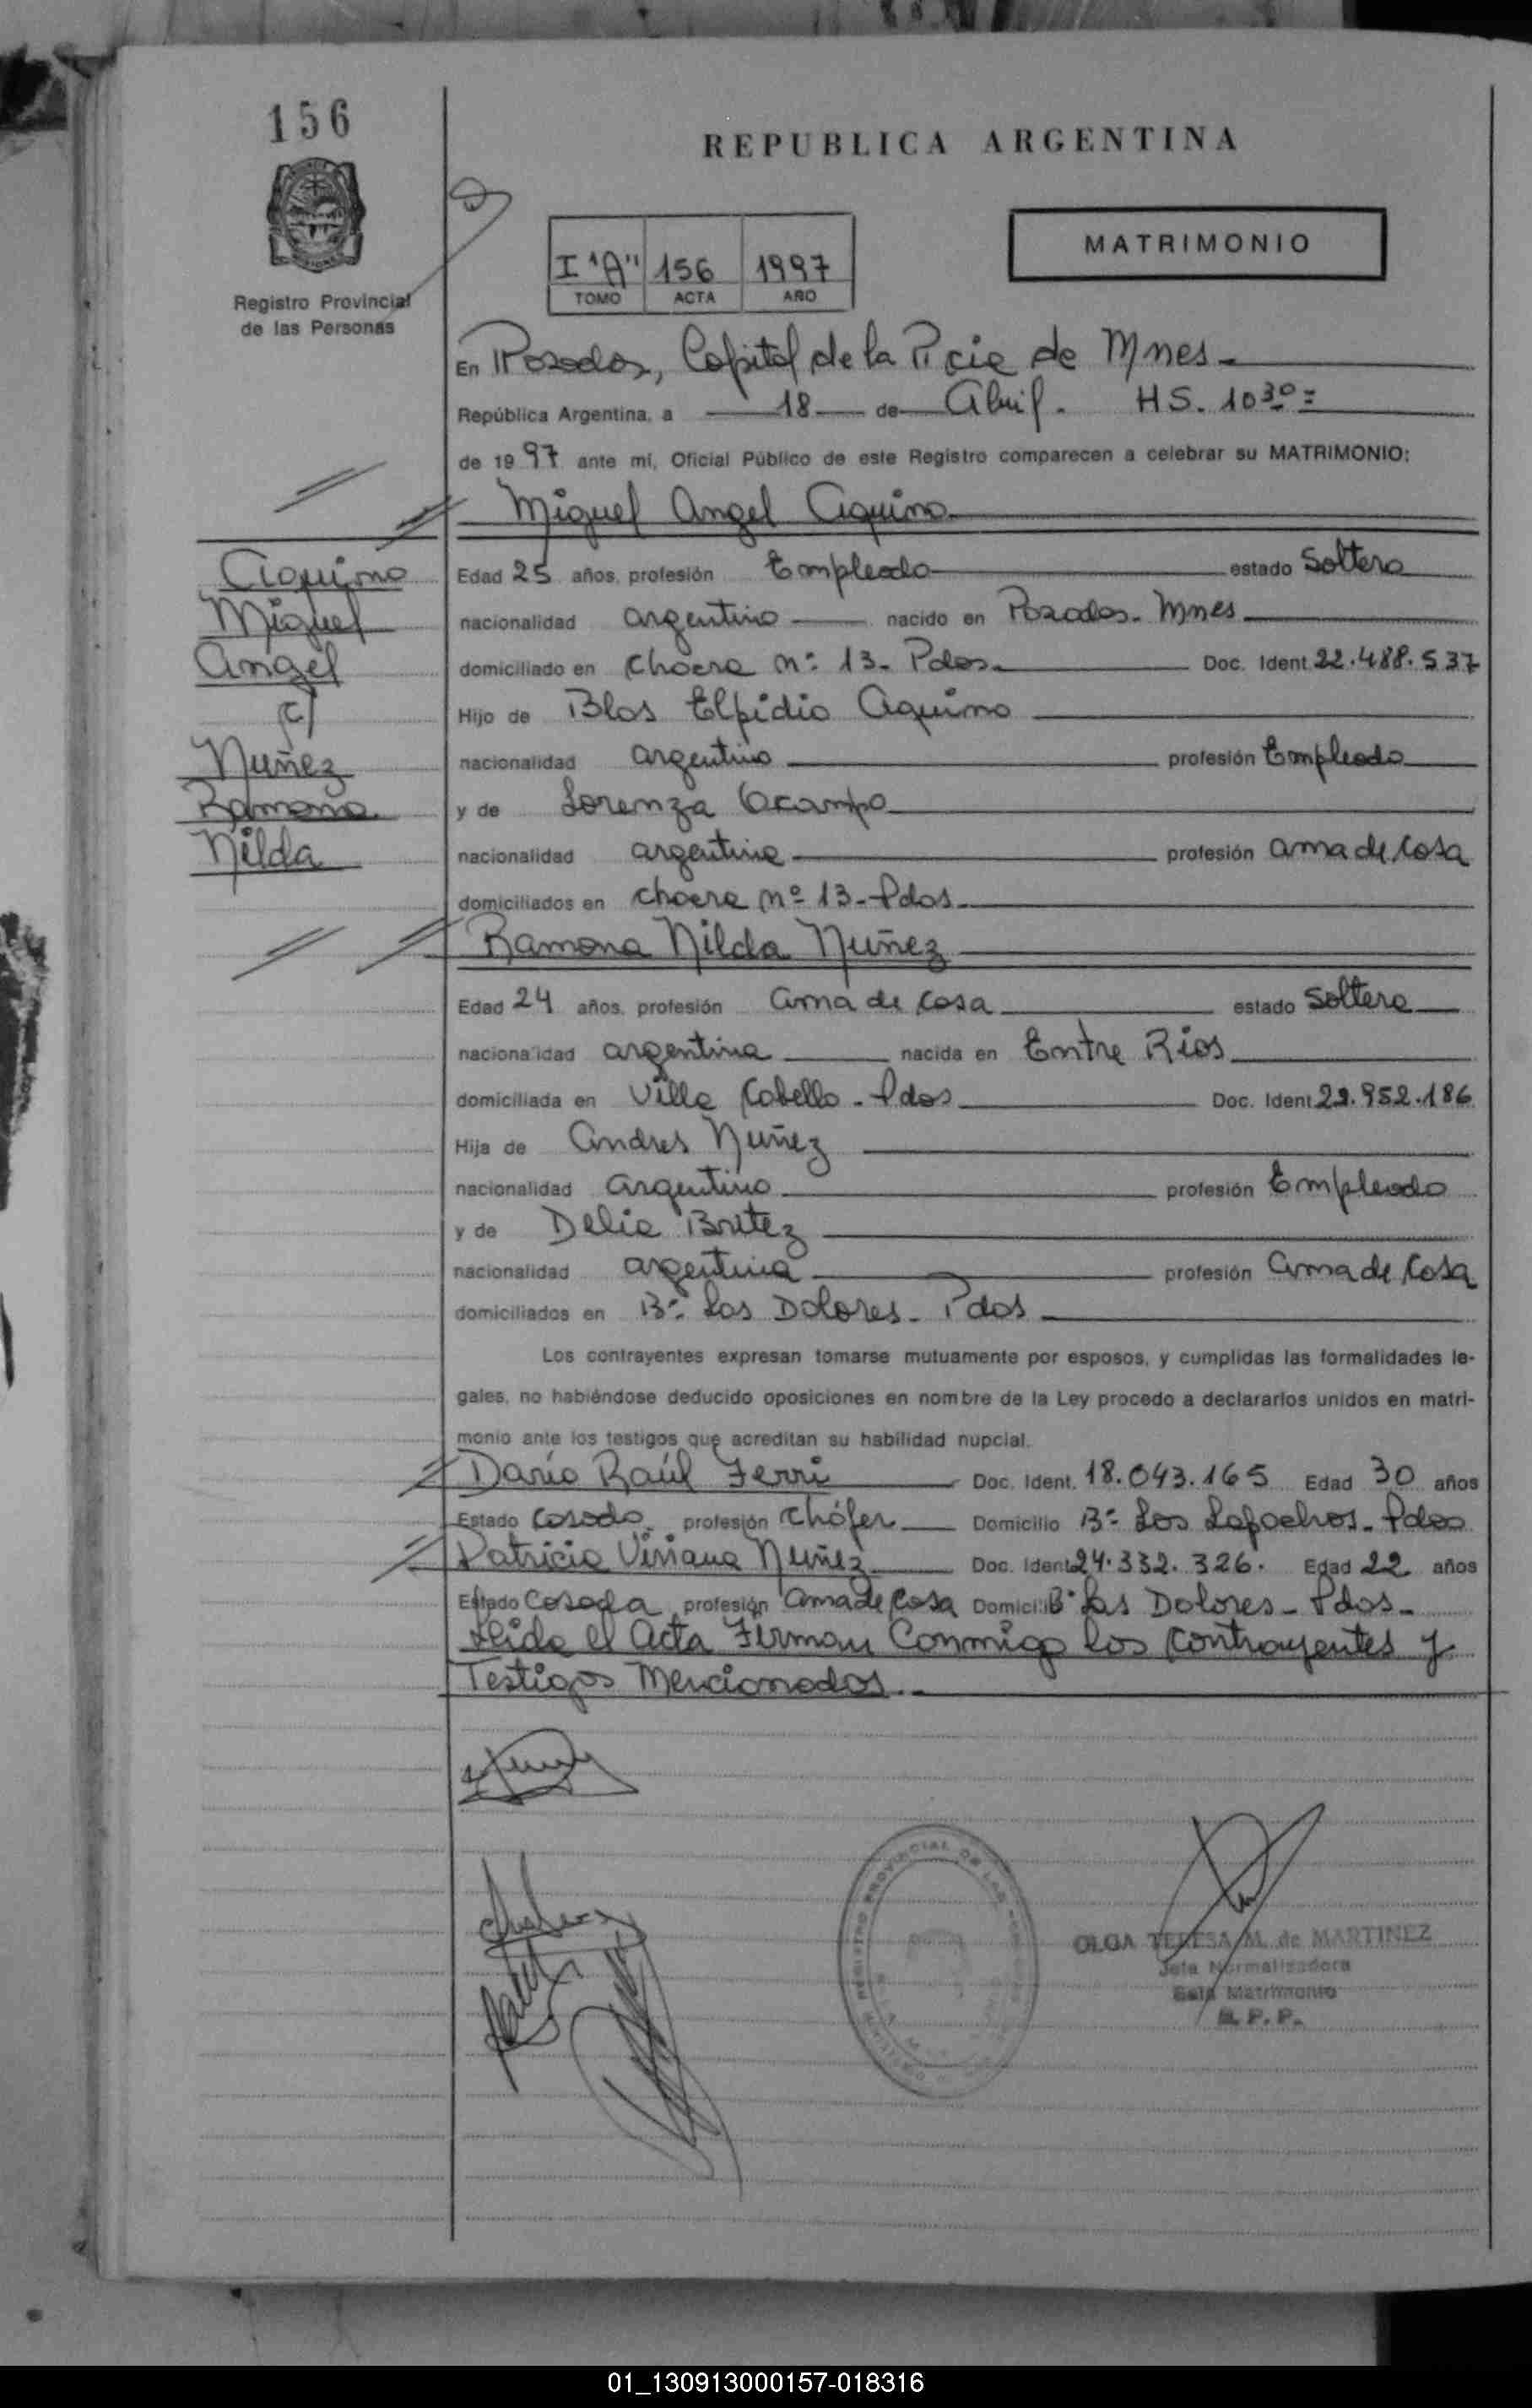 156
REPUBLICA ARGENTINA
I "A" 156 1997
TOMO ACTA AÑO
MATRIMONIO
Registro Provincial
de las Personas
En Posadas, Capital de la Pcia de Mnes
República Argentina, a 18 de Abril. HS. 10 30
de 1997 ante mí, Oficial Público de este Registro comparecen a celebrar su MATRIMONIO:
Miguel Angel Aquino
Aquino
Miguel
Angel
c/
Nuñez
Ramona
Nilda
Edad 25 años, profesión Empleado estado Soltero
nacionalidad argentino nacido en Posadas - Mnes
domiciliado en Chacra Nº 13 - Pdas Doc. Ident. 22.488.537
Hijo de Blas Elpidio Aquino
nacionalidad argentino profesión Empleado
y de Lorenza Ocampo
nacionalidad argentina profesión ama de casa
domiciliados en chacra Nº 13 - Pdas
Ramona Nilda Nuñez
Edad 24 años, profesión ama de casa estado Soltera
nacionalidad argentina nacida en Entre Rios
domiciliada en Villa Cabello - Pdas Doc. Ident. 22.952.186
Hija de Andres Nuñez
nacionalidad argentino profesión Empleado
y de Delia Britez
nacionalidad argentina profesión ama de casa
domiciliados en Bº Las Dolores - Pdas
Los contrayentes expresan tomarse mutuamente por esposos, y cumplidas las formalidades le-
gales, no habiéndose deducido oposiciones en nombre de la Ley procedo a declararlos unidos en matri-
monio ante los testigos que acreditan su habilidad nupcial.
Darío Raúl Ferri Doc. Ident. 18.043.165 Edad 30 años
Estado Casado profesión Chófer Domicilio Bº Los Lapachos - Pdas
Patricia Viviana Nuñez Doc. Ident. 24.332.326. Edad 22 años
Estado Casada profesión ama de casa Domicilio Bº Las Dolores - Pdas -
Leida el Acta Firman Conmigo los contrayentes y
Testigos Mencionados
REGISTRO PROVINCIAL DE LAS
OLGA TERESA M. de MARTINEZ
Jefa Normalizadora
Sala Matrimonio
R. P. P.
01_130913000157-018316